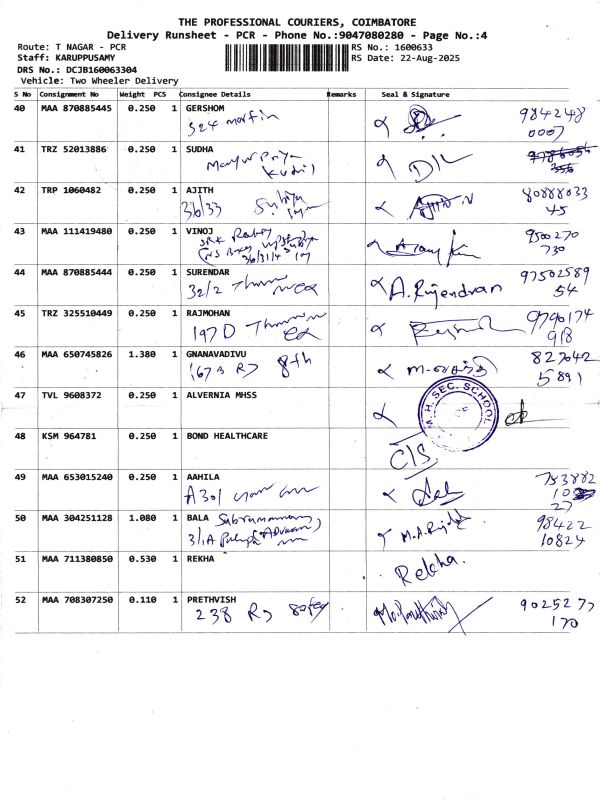 THE PROFESSIONAL COURIERS, COIMBATORE
Delivery Runsheet - PCR - Phone No.:9047080280 - Page No.:4
Route: T NAGAR - PCR RS No.: 1600633
Staff: KARUPPUSAMY RS Date: 22-Aug-2025
DRS No.: DCJB160063304
Vehicle: Two Wheeler Delivery
S No Consignment No Weight PCS Consignee Details Remarks Seal & Signature
40 MAA 870885445 0.250 1 GERSHOM 984248
524 0007
41 TRZ 52013886 0.250 1 SUDHA
42 TRP 1060482 0.250 1 AJITH 80888033
36/33 45
43 MAA 111419480 0.250 1 VINOJ 9500270
730
44 MAA 870885444 0.250 1 SURENDAR A. Rajendran 97502589
32/2 54
45 TRZ 325510449 0.250 1 RAJMOHAN 9790174
197 D 918
46 MAA 650745826 1.380 1 GNANAVADIVU 827042
167 B 8th 5891
47 TVL 9608372 0.250 1 ALVERNIA MHSS
M. H. SEC. SCHOOL
48 KSM 964781 0.250 1 BOND HEALTHCARE
C/S
49 MAA 653015240 0.250 1 AAHILA
A301
50 MAA 304251128 1.080 1 BALA Subramaniam 98422
3/1A 10824
51 MAA 711380850 0.530 1 REKHA Rekha.
52 MAA 708307250 0.110 1 PRETHVISH 9025277
238 170